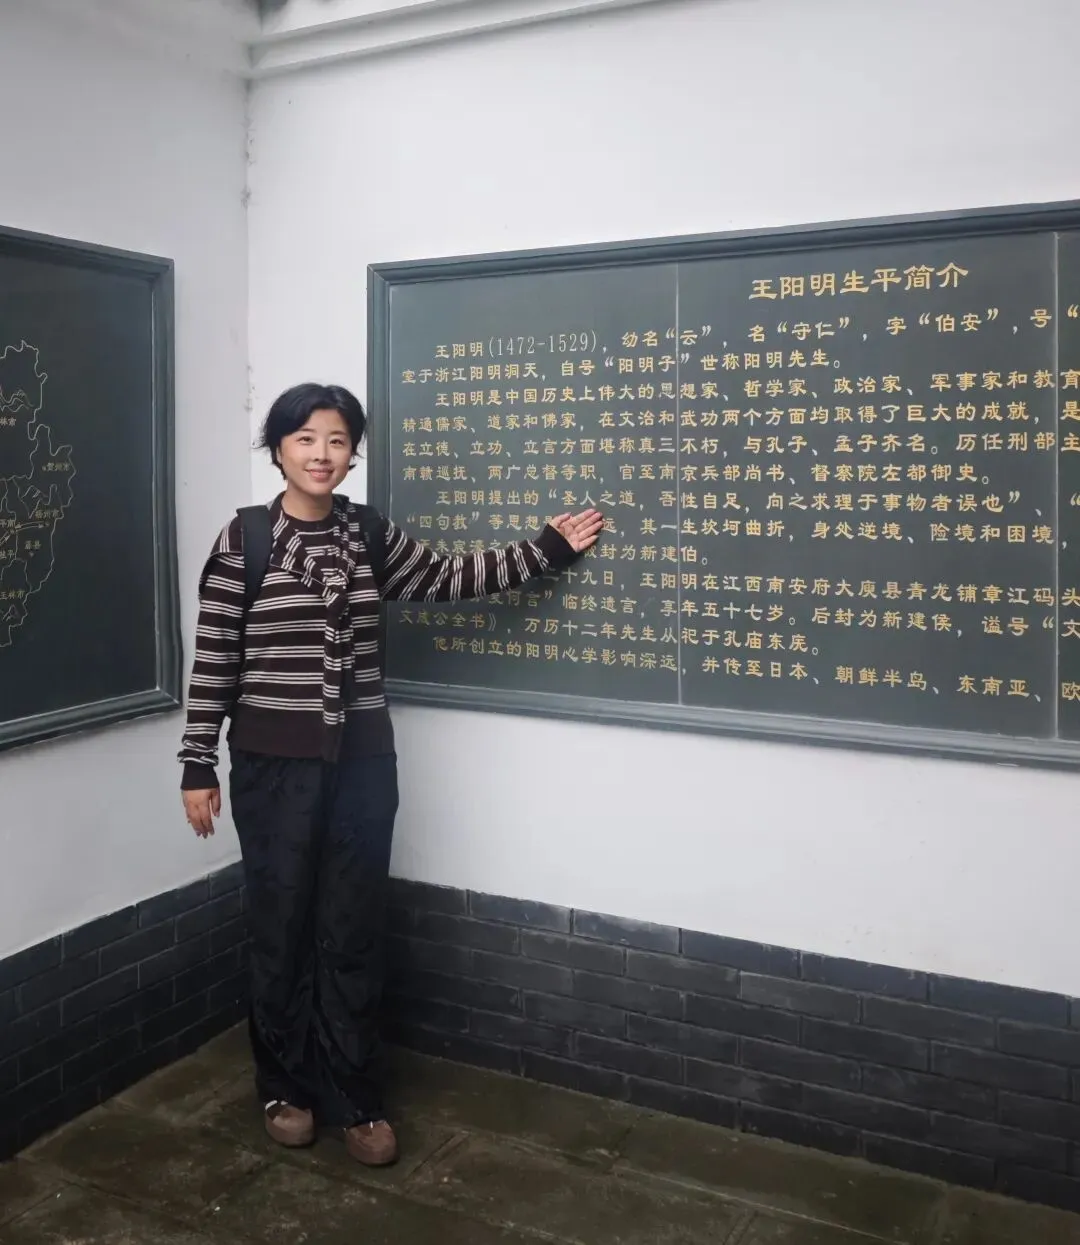 王阳明生平简介
王阳明(1472-1529)，幼名“云”，名“守仁”，字“伯安”，号“
室于浙江阳明洞天，自号“阳明子”世称阳明先生。
王阳明是中国历史上伟大的思想家、哲学家、政治家、军事家和教育
精通儒家、道家和佛家，在文治和武功两个方面均取得了巨大的成就，是
在立德、立功、立言方面堪称真三不朽，与孔子、孟子齐名。历任刑部主
南赣巡抚、两广总督等职，官至南京兵部尚书、督察院左都御史。
王阳明提出的“圣人之道，吾性自足，向之求理于事物者误也”、“
“四句教”等思想 远，其一生坎坷曲折，身处逆境、险境和困境，
朱宸濠之 封为新建伯。
十九日，王阳明在江西南安府大庾县青龙铺章江码头
何言”临终遗言，享年五十七岁。后封为新建侯，谥号“文
文成公全书》，万历十二年先生从祀于孔庙东庑。
他所创立的阳明心学影响深远，并传至日本、朝鲜半岛、东南亚、欧
林市
贺州市
梧州市
平南
藤县
桂平
玉林市